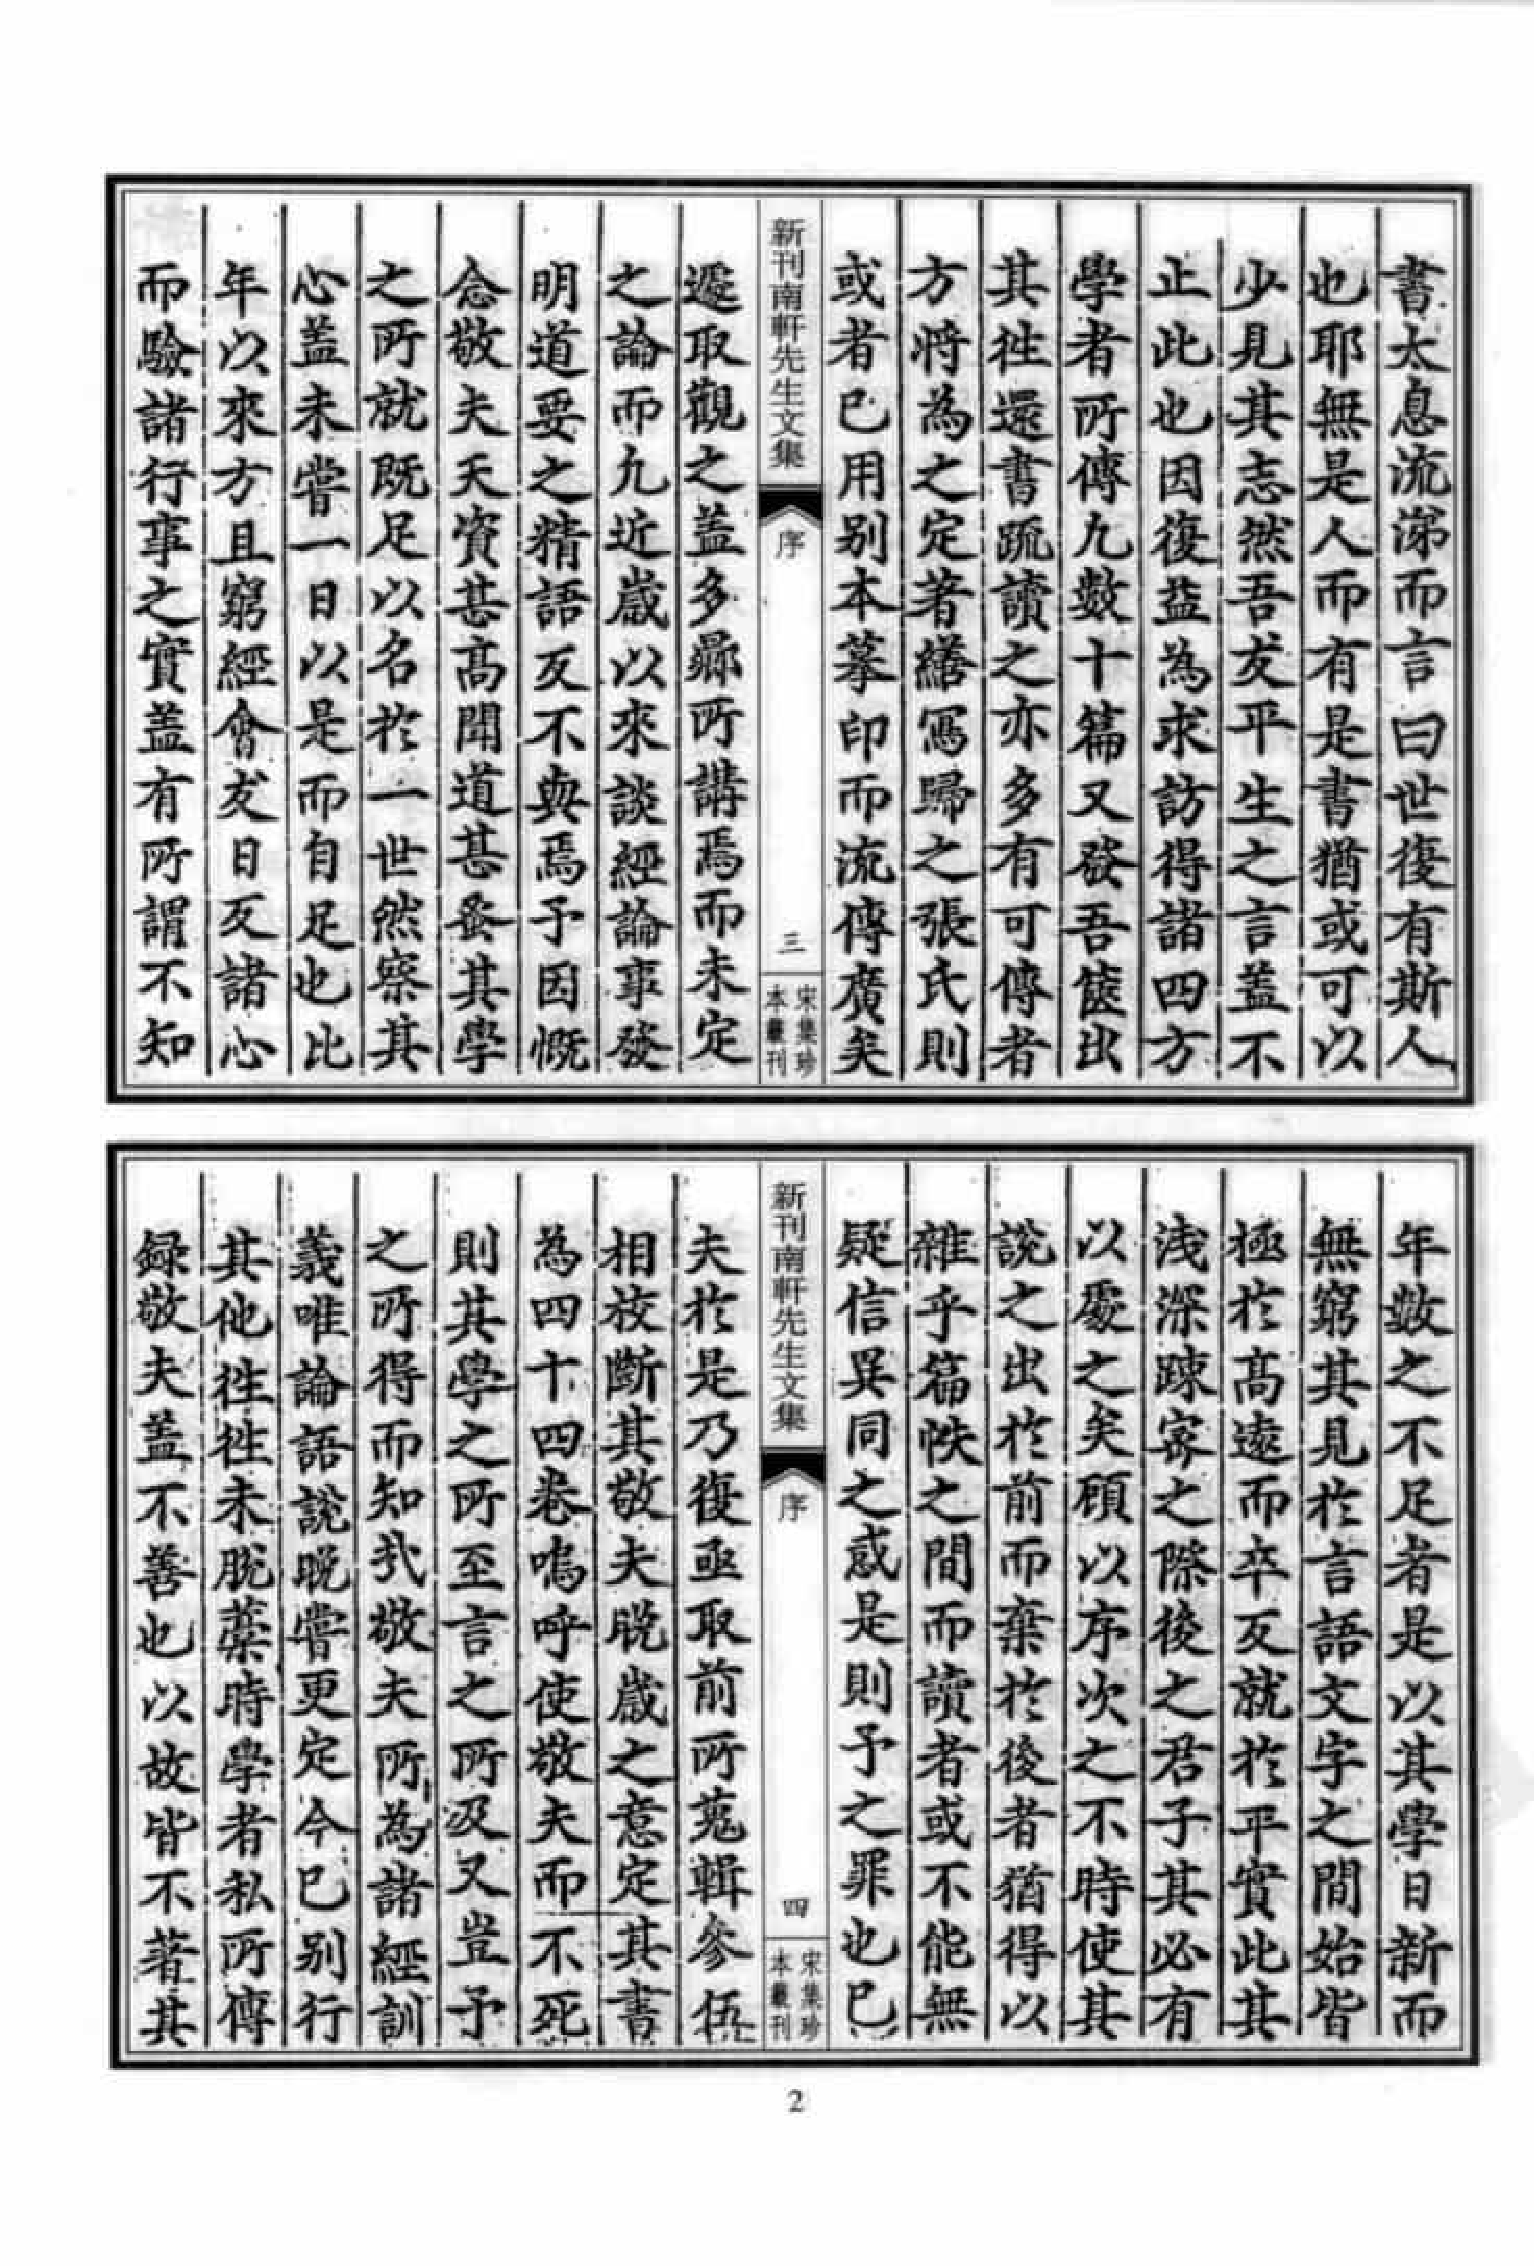 書太息流涕而言曰世復有斯人
也耶無是人而有是書猶或可以
少見其志然吾友平生之言盖不
止此也因復益為求訪得諸四方
學者所傳凡數十篇又發吾篋出
其徃還書疏讀之亦多有可傳者
方將為之定著繕寫歸之張氏則
或者已用别本摹印而流傳廣矣
新刊南軒先生文集
序
三
宋集珍
本叢刊
遽取觀之盖多曏所講焉而未定
之論而凡近歲以來談經論事發
明道要之精語反不與焉予因慨
念敬夫天資甚髙聞道甚蚤其學
之所就既足以名於一世然察其
心盖未嘗一日以是而自足也比
年以來方且窮經會友日反諸心
而驗諸行事之實盖有所謂不知
年數之不足者是以其學日新而
無窮其見於言語文字之間始皆
極於髙遠而卒反就於平實此其
浅深踈宻之際後之君子其必有
以處之矣顧以序次之不時使其
說之出於前而棄於後者猶得以
雜乎篇帙之間而讀者或不能無
疑信異同之惑是則予之罪也已
新刊南軒先生文集
序
四
宋集珍
本叢刊
夫於是乃復亟取前所蒐輯參伍
相校斷其敬夫晚歲之意定其書
為四十四卷嗚呼使敬夫而不死
則其學之所至言之所及又豈予
之所得而知哉敬夫所為諸經訓
義唯論語說晚嘗更定今已别行
其他徃徃未脱藁時學者私所傳
録敬夫盖不善也以故皆不著其
2